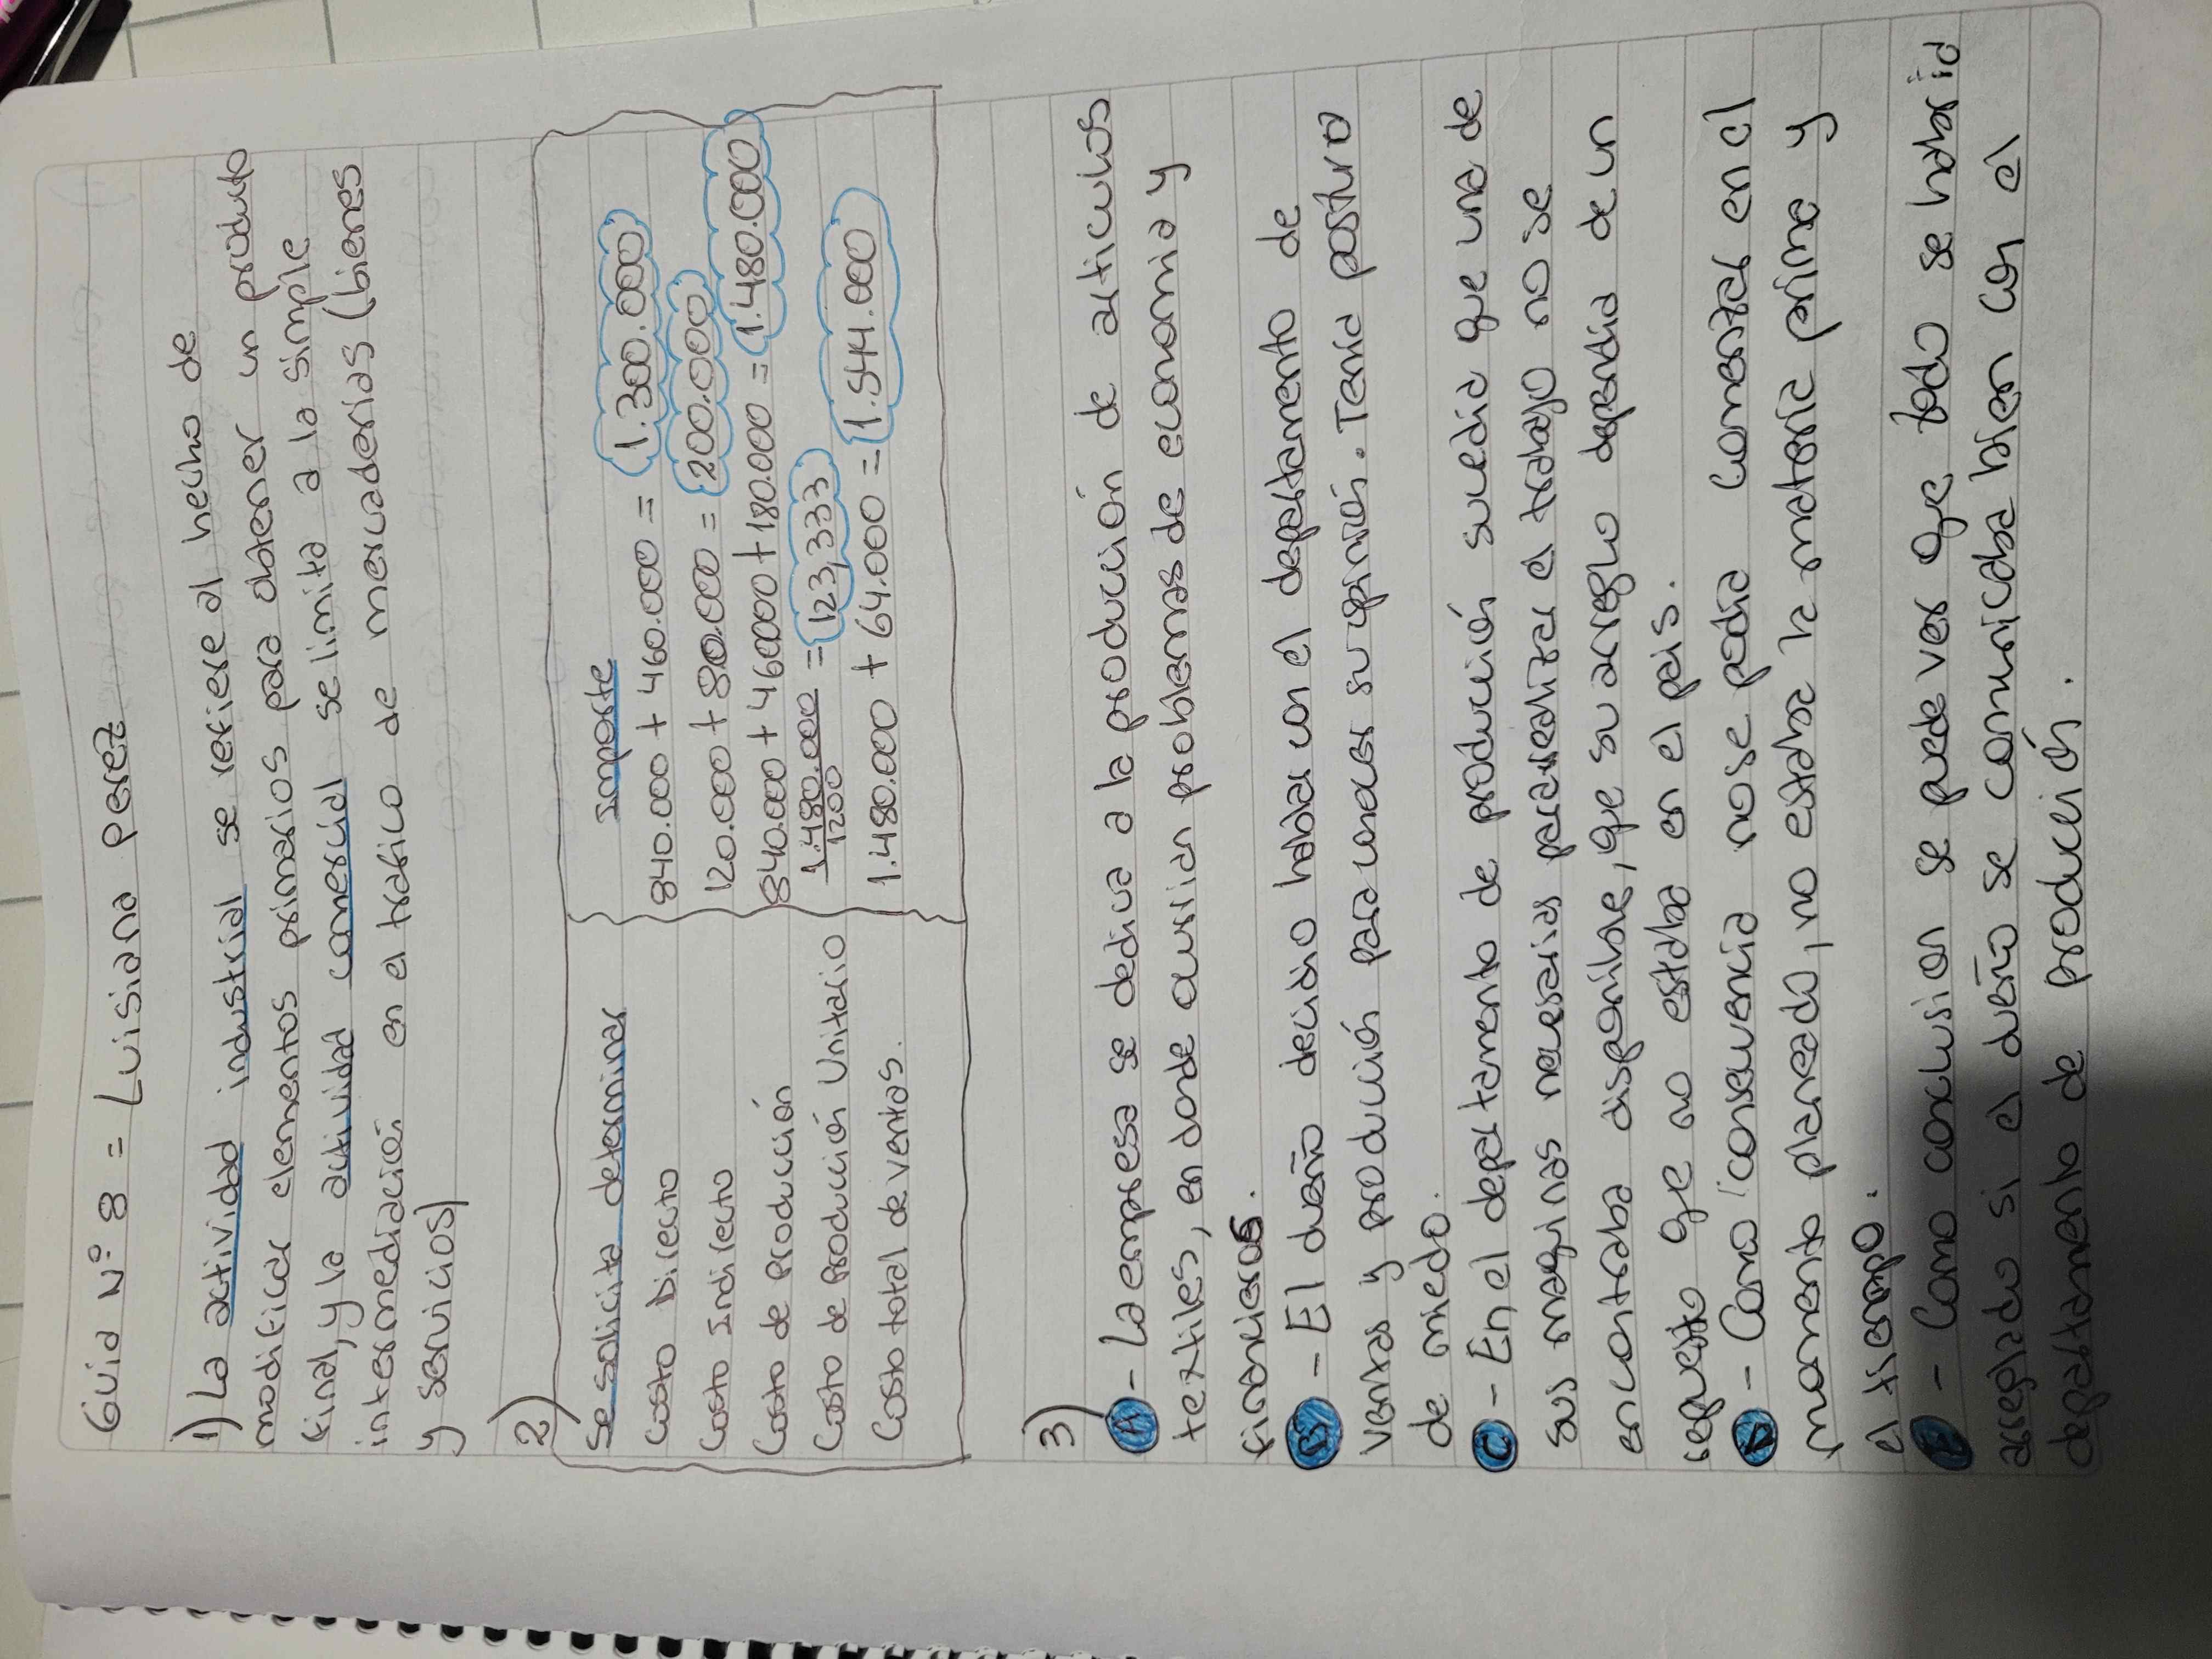 Guia N° 8 = Luisiana perez
1) La actividad industrial se refiere al hecho de
modificar elementos primarios para obtener un producto
final, y la actividad comercial se limita a la simple
intermediación en el trafico de mercaderias (bienes
y servicios)
2)
Se solicita determinar Importe
Costo Directo 840.000 + 460.000 = 1.300.000
Costo Indirecto 120.000 + 80.000 = 200.000
Costo de Producción 840.000 + 460000 + 180.000 = 1.480.000
Costo de Producción Unitario 1.480.000 / 1200 = 123,333
Costo total de ventas. 1.480.000 + 64.000 = 1.544.000
3)
A - La empresa se dedica a la producción de articulos
textiles, en donde ocurrian problemas de economia y
financieros.
B - El dueño decidio hablar con el departamento de
ventas y producción para conocer su opinión. Tenia postura
de miedo.
C - En el departamento de producción sucedia que una de
sus maquinas necesarias para realizar el trabajo no se
encontraba disponible, que su arreglo dependia de un
repuesto que no estaba en el pais.
D - Como consecuencia no se podia comenzar en el
momento planeado, no estaba la materia prima y
el tiempo.
E - Como conclusion se puede ver que todo se habria
arreglado si el dueño se comunicaba bien con el
departamento de producción.